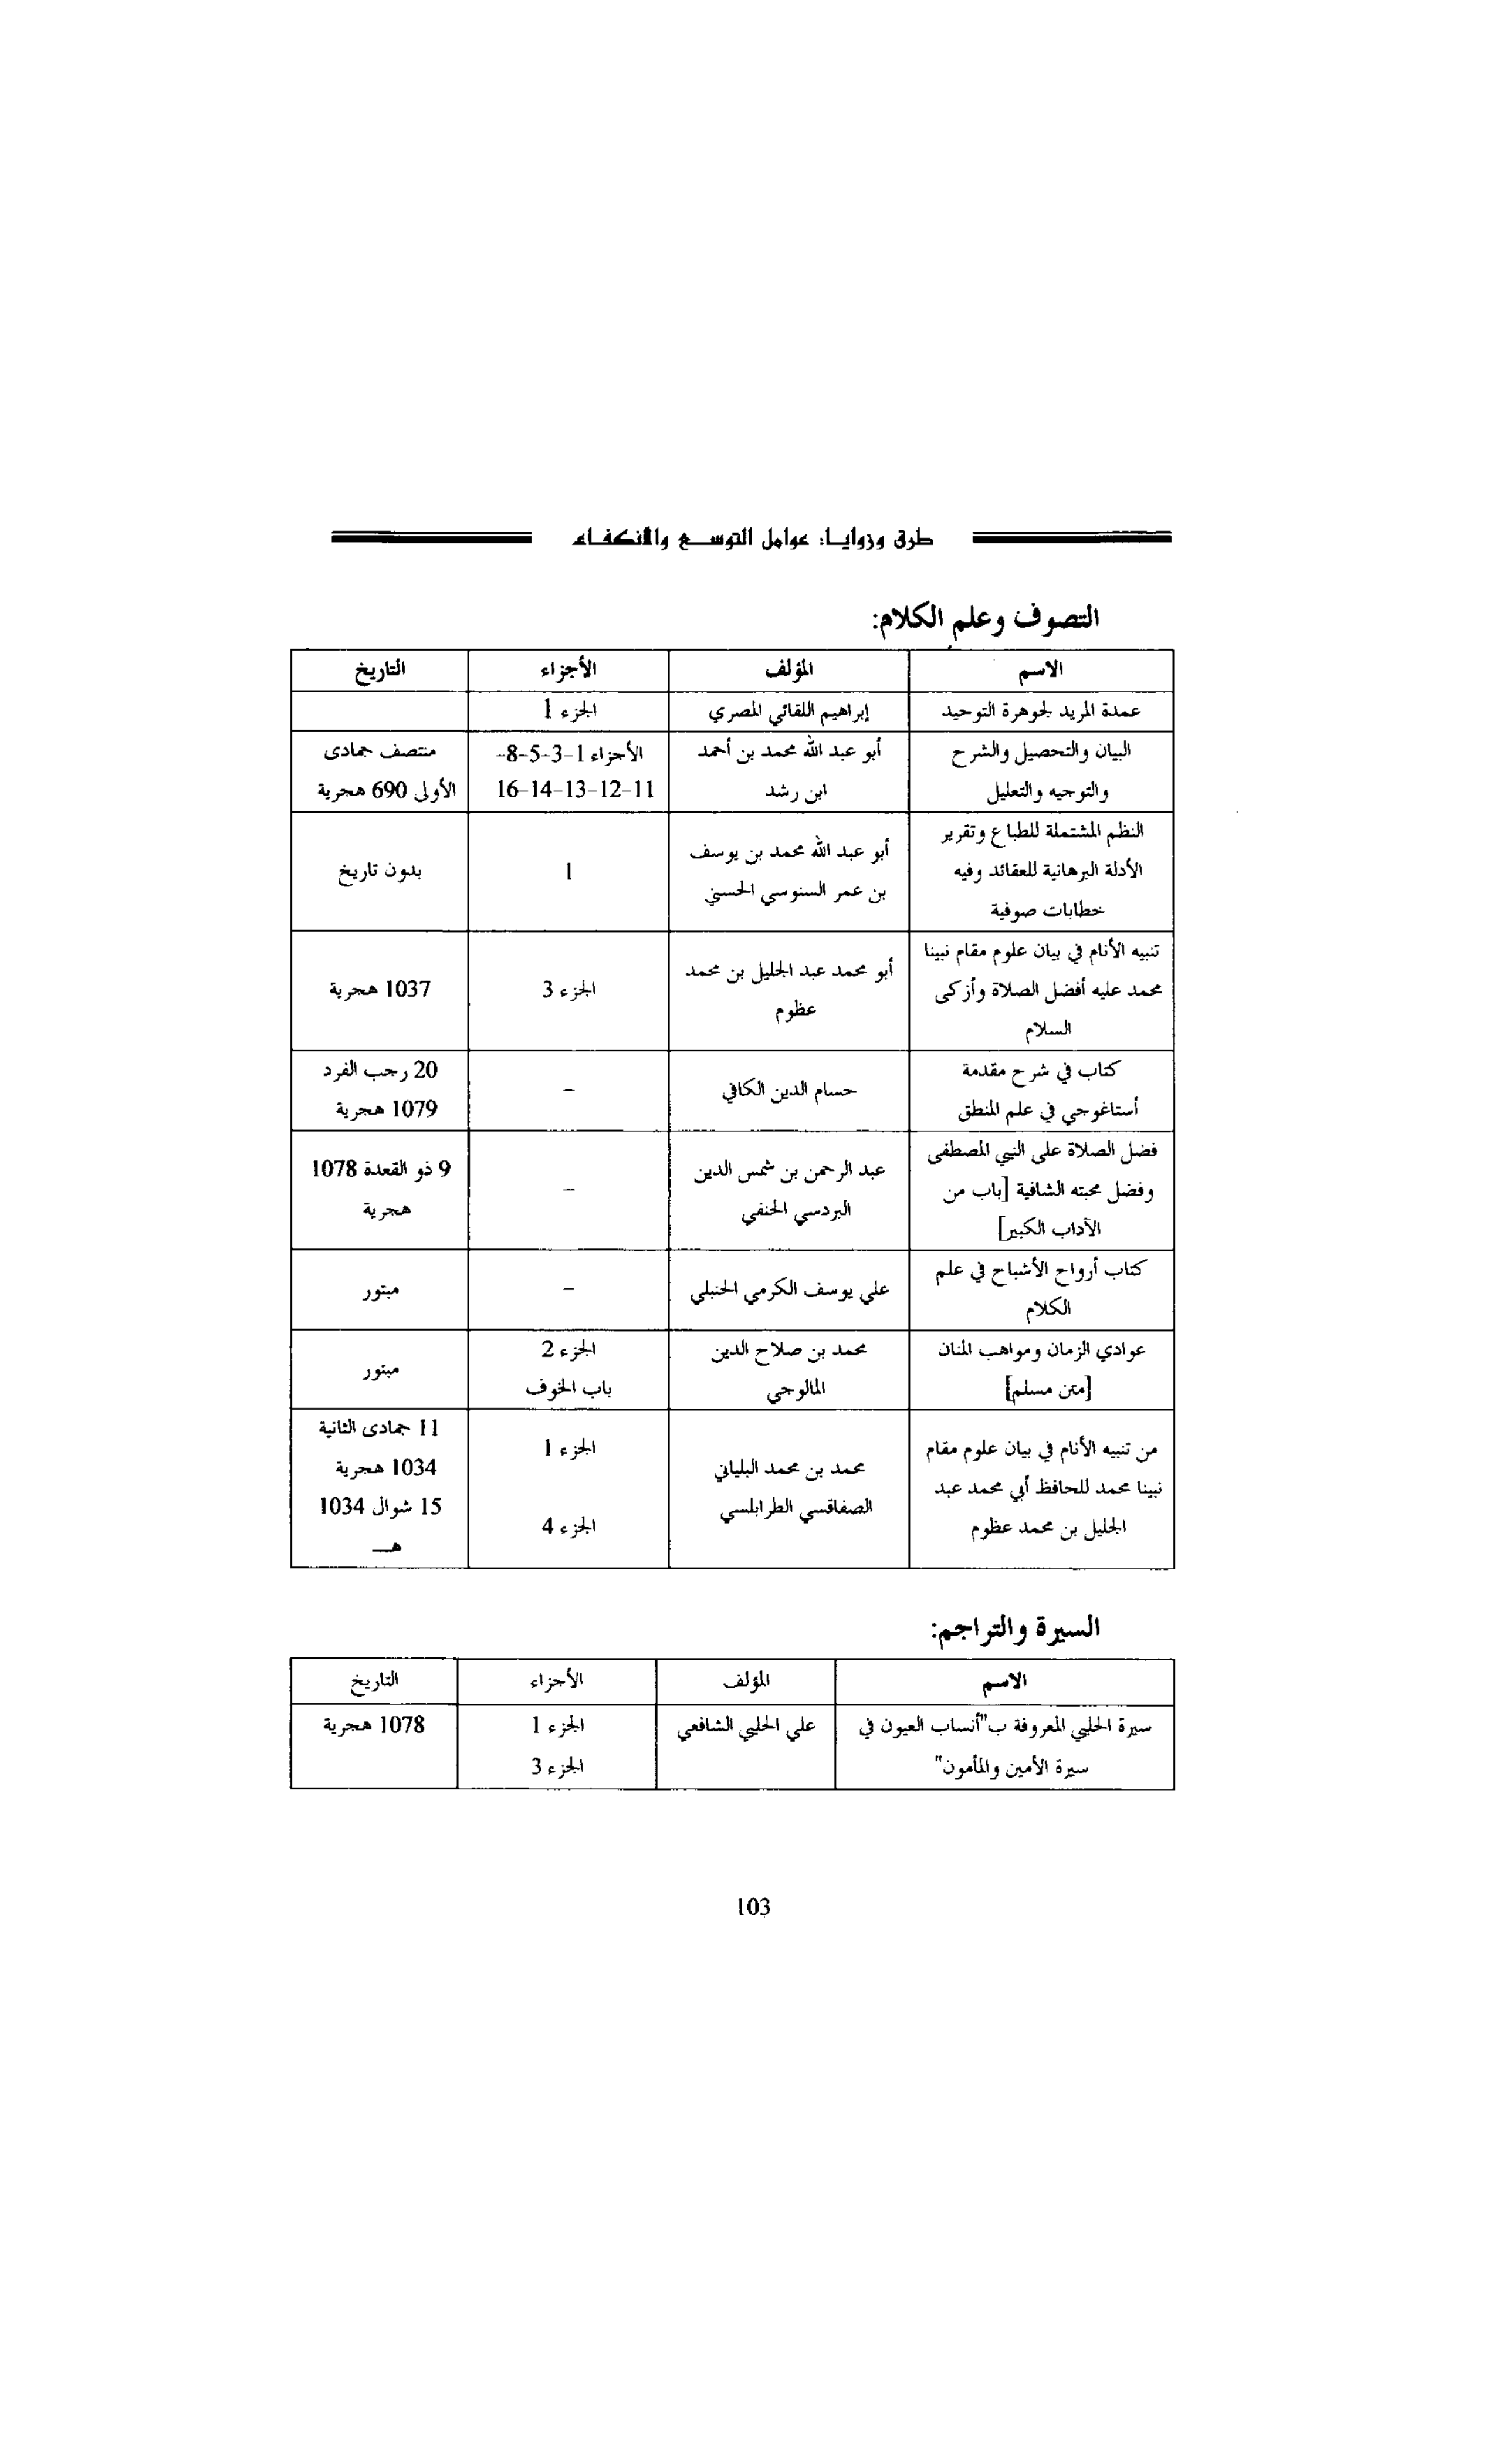 طرق وزوايا: عوامل التوسع والانكفاء
التصوف وعلم الكلام:
الاسم المؤلف الأجزاء التاريخ
عمدة المريد لجوهرة التوحيد إبراهيم اللقائي المصري الجزء 1
البيان والتحصيل والشرح أبو عبد الله محمد بن أحمد الأجزاء 1-3-5-8- منتصف جمادى
والتوجيه والتعليل ابن رشد 11-12-13-14-16 الأولى 690 هجرية
النظم المشتملة للطباع وتقرير
الأدلة البرهانية للعقائد وفيه
خطابات صوفية
أبو عبد الله محمد بن يوسف
بن عمر السنوسي الحسني
1
بدون تاريخ
تنبيه الأنام في بيان علوم مقام نبينا
محمد عليه أفضل الصلاة وأزكى
السلام
أبو محمد عبد الجليل بن محمد
عظوم
الجزء 3
1037 هجرية
كتاب في شرح مقدمة
أستاغوجي في علم المنطق
حسام الدين الكافي
-
20 رجب الفرد
1079 هجرية
فضل الصلاة على النبي المصطفى
وفضل محبته الشافية [باب من
الآداب الكبير]
عبد الرحمن بن شمس الدين
البردسي الحنفي
-
9 ذو القعدة 1078
هجرية
كتاب أرواح الأشباح في علم
الكلام
علي يوسف الكرمي الحنبلي
-
مبتور
عوادي الزمان ومواهب المنان
[متن مسلم]
محمد بن صلاح الدين
المالوجي
الجزء 2
باب الخوف
مبتور
من تنبيه الأنام في بيان علوم مقام
نبينا محمد للحافظ أبي محمد عبد
الجليل بن محمد عظوم
محمد بن محمد البلياني
الصفاقسي الطرابلسي
الجزء 1
الجزء 4
11 جمادى الثانية
1034 هجرية
15 شوال 1034
هـ
السيرة والتراجم:
الاسم المؤلف الأجزاء التاريخ
سيرة الحلبي المعروفة ب"أنساب العيون في علي الحلبي الشافعي الجزء 1 1078 هجرية
سيرة الأمين والمأمون" الجزء 3
103